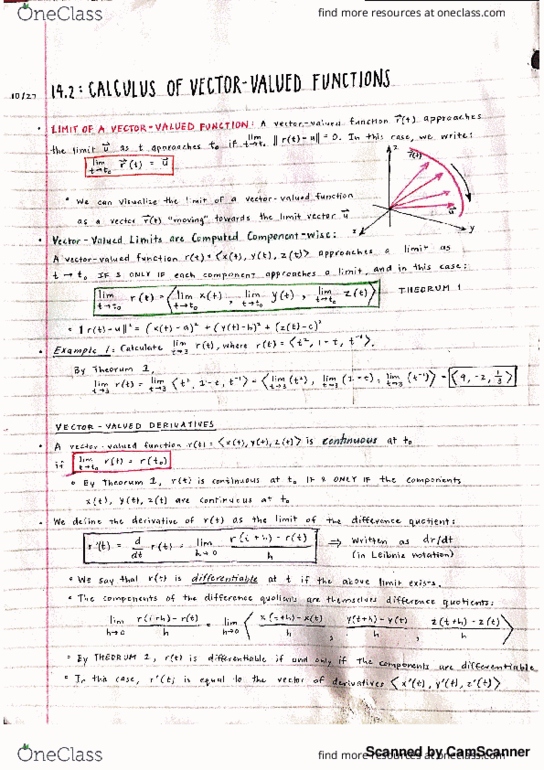 OneClass
find more resources at oneclass.com
10/27
14.2: CALCULUS OF VECTOR-VALUED FUNCTIONS
• LIMIT OF A VECTOR-VALUED FUNCTION: A vector-valued function r⃗(t) approaches
the limit u⃗ as t approaches t₀ if lim t→t₀ ‖r(t)-u‖ = 0. In this case, we write:
lim t→t₀ r⃗(t) = u⃗
z
r⃗(t)
u⃗
y
• We can visualize the limit of a vector-valued function
as a vector r⃗(t) "moving" towards the limit vector u⃗
• Vector-Valued Limits are Computed Component-wise:
A vector-valued function r(t) = ⟨x(t), y(t), z(t)⟩ approaches a limit as
t → t₀ IF & ONLY IF each component approaches a limit, and in this case:
lim t→t₀ r(t) = ⟨lim t→t₀ x(t), lim t→t₀ y(t), lim t→t₀ z(t)⟩ THEORUM 1
• ‖r(t)-u‖² = (x(t)-a)² + (y(t)-b)² + (z(t)-c)²
• Example 1: Calculate lim t→3 r(t), where r(t) = ⟨t², 1-t, t⁻¹⟩.
By Theorum 1,
lim t→3 r(t) = lim t→3 ⟨t², 1-t, t⁻¹⟩ = ⟨lim t→3 (t²), lim t→3 (1-t), lim t→3 (t⁻¹)⟩ = ⟨9, -2, 1/3⟩
VECTOR-VALUED DERIVATIVES
• A vector-valued function r(t) = ⟨x(t), y(t), z(t)⟩ is continuous at t₀
if lim t→t₀ r(t) = r(t₀)
• By Theorum 1, r(t) is continuous at t₀ IF & ONLY IF the components
x(t), y(t), z(t) are continuous at t₀
• We define the derivative of r(t) as the limit of the difference quotient:
r'(t) = d/dt r(t) = lim h→0 r(t+h)-r(t)/h ⇒ Written as dr/dt
(in Leibniz notation)
• We say that r(t) is differentiable at t if the above limit exists.
• The components of the difference quotients are themselves difference quotients:
lim h→0 r(t+h)-r(t)/h = lim h→0 ⟨x(t+h)-x(t)/h, y(t+h)-y(t)/h, z(t+h)-z(t)/h⟩
• By THEORUM 1, r(t) is differentiable if and only if the components are differentiable
• In this case, r'(t) is equal to the vector of derivatives ⟨x'(t), y'(t), z'(t)⟩
Scanned by CamScanner
OneClass
find more resources at oneclass.com